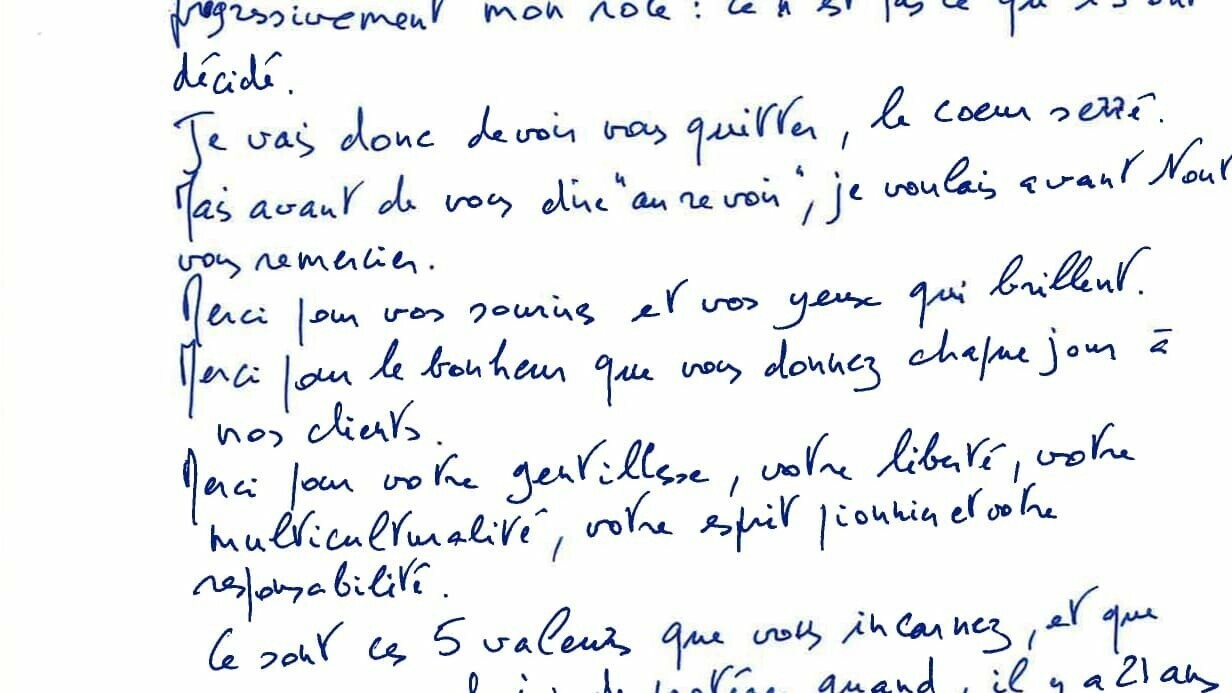 progressivement mon rôle : ce n'est pas ce qu'ils ont
décidé.
Je vais donc devoir vous quitter, le coeur serré.
Mais avant de vous dire "au revoir", je voulais avant tout
vous remercier.
Merci pour vos sourires et vos yeux qui brillent.
Merci pour le bonheur que vous donnez chaque jour à
nos clients.
Merci pour votre gentillesse, votre liberté, votre
multiculturalité, votre esprit pionnier et votre
responsabilité.
Ce sont ces 5 valeurs que vous incarnez, et que
quand, il y a 21 ans